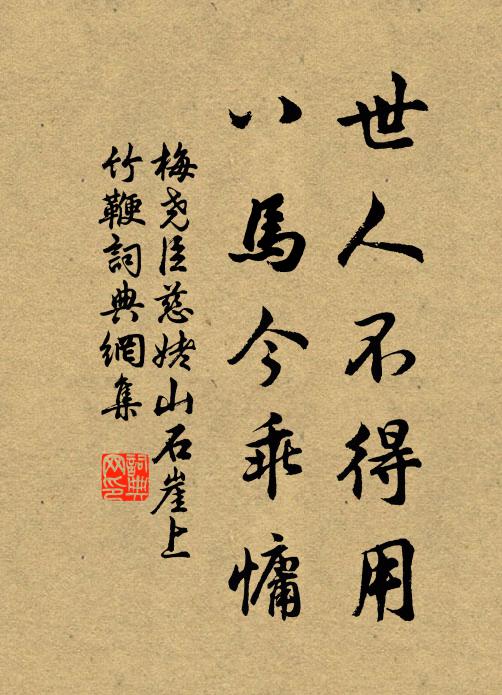 世人不得用
八馬今乘慵
梅尧臣慈姥山石崖上
竹鞭詞典網集
詞典网印